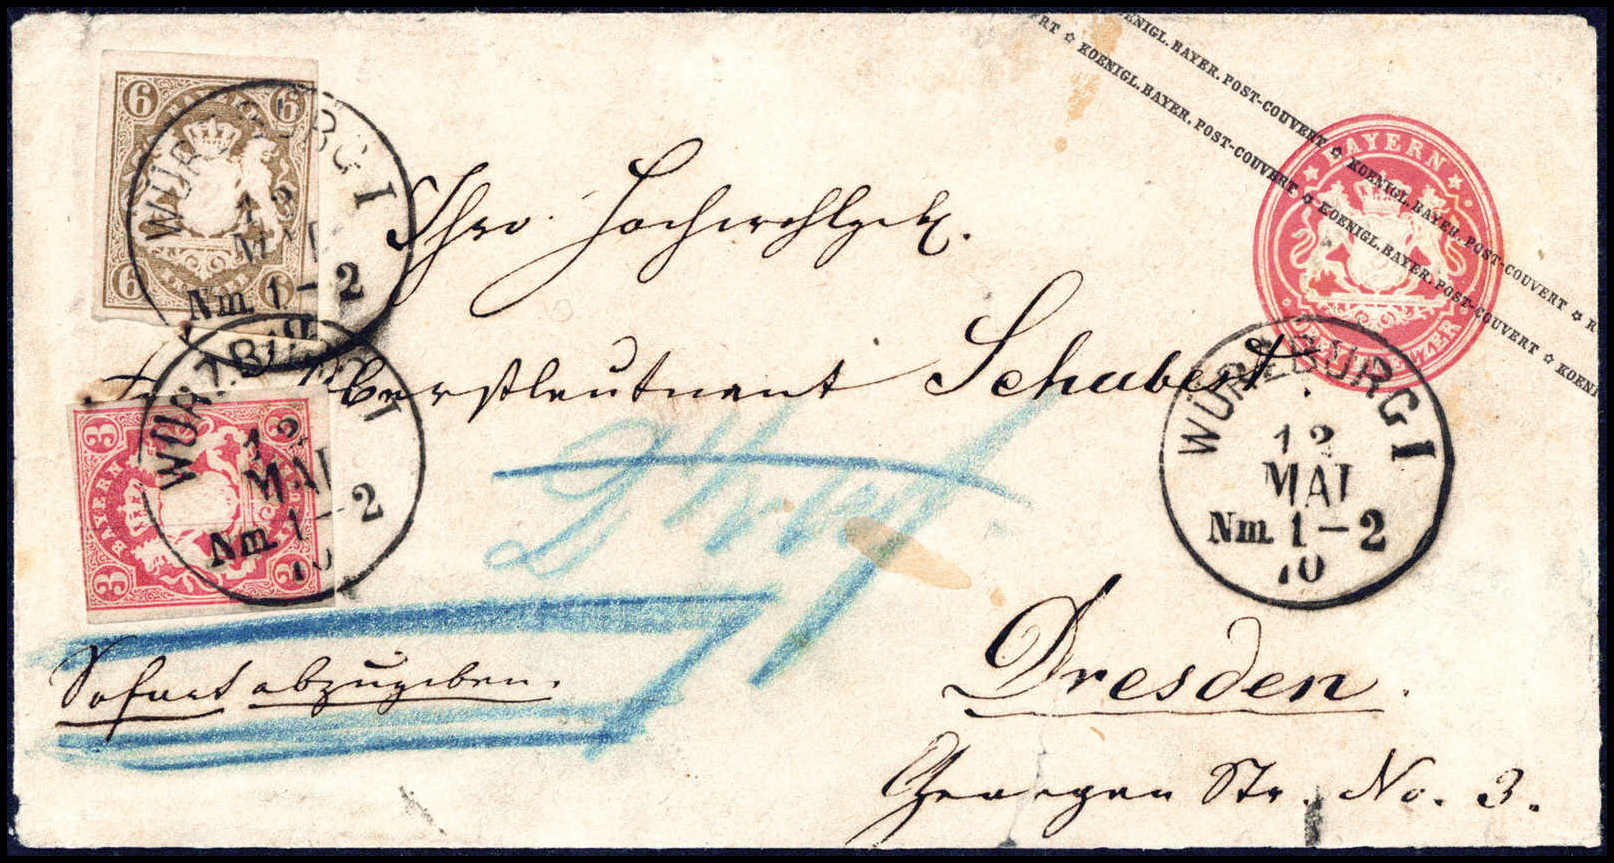 RT ☆ KOENIGL. BAYER. POST-COUVERT ☆ KOENIGL. BAYER. POST-COUVERT ☆ KOENI
ENIGL. BAYER. POST-COUVERT ☆ KOENIGL. BAYER. POST-COUVERT ☆ R
★ BAYERN ★
DREI KREUZER
6 6
6 6
WÜRZBURG I
12
MAI
Nm. 1-2
70
Ihro Hochwohlgeb.
Oberstleutnant Schubert.
3
BAYERN
3 3
WÜRZBURG I
12
MAI
Nm. 1-2
70
WÜRZBURG I
12
MAI
Nm. 1-2
70
Sofort abzugeben.
Dresden.
Georgen Str. No. 3.